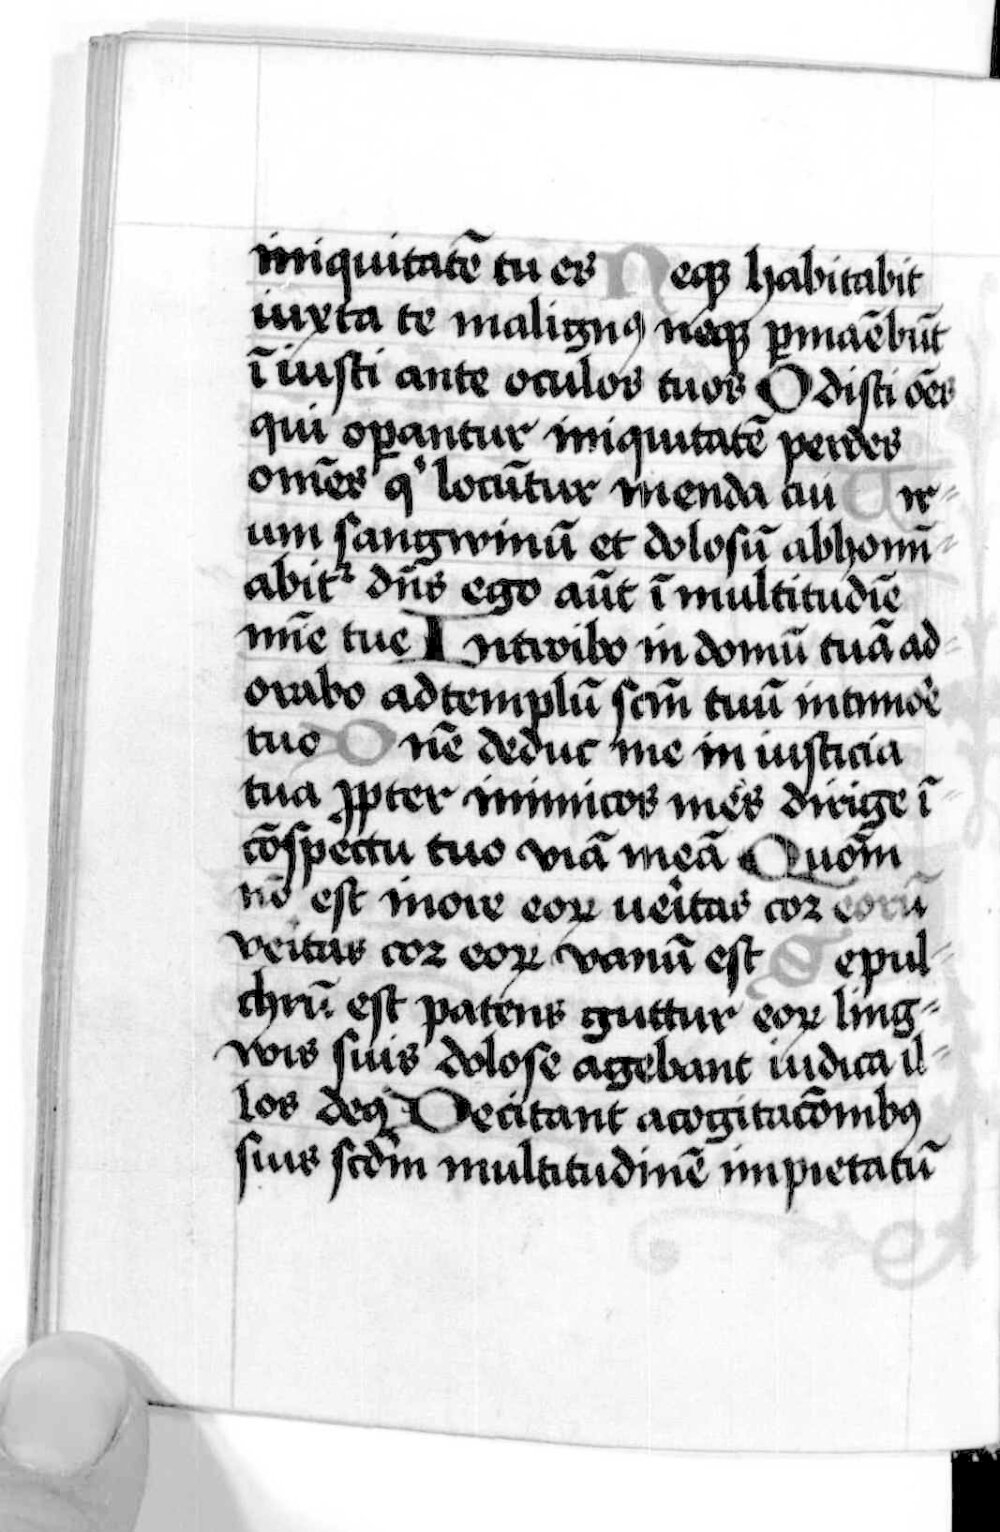 iniquitatē tu es Neqꝫ habitabit
iuxta te malignꝯ neqꝫ ꝑmaēbūt
īiusti ante oculos tuos Odisti oēs
qui oꝑantur iniquitatē perdes
omēs qͥ locūtur mendaciū Vir⸗
um sangwinū et dolosū abhomī⸗
abitᷣ dn̄s ego aūt ī multitudīe
mīe tue Introibo in domū tuā ad⸗
orabo ad templū scm̄ tuū in timōe
tuo Dne̅ deduc me in iusticia
tua ꝓpter inimicos meōs dirige ī⸗
cōspectu tuo viā meā Quom̄
nō est in ore eoꝝ ueitas cor eorū
veitas cor eoꝝ vanū est Sepul⸗
chrū est patens guttur eoꝝ ling⸗
wis suis dolose agebant iudica il⸗
los deꝯ Decitant a cogitacōnibꝯ
suis scd̄m multitudinē impietatū